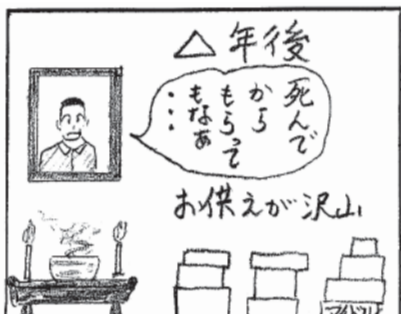 △年後
死んで
から
もらって
もなあ
・・・
お供えが沢山